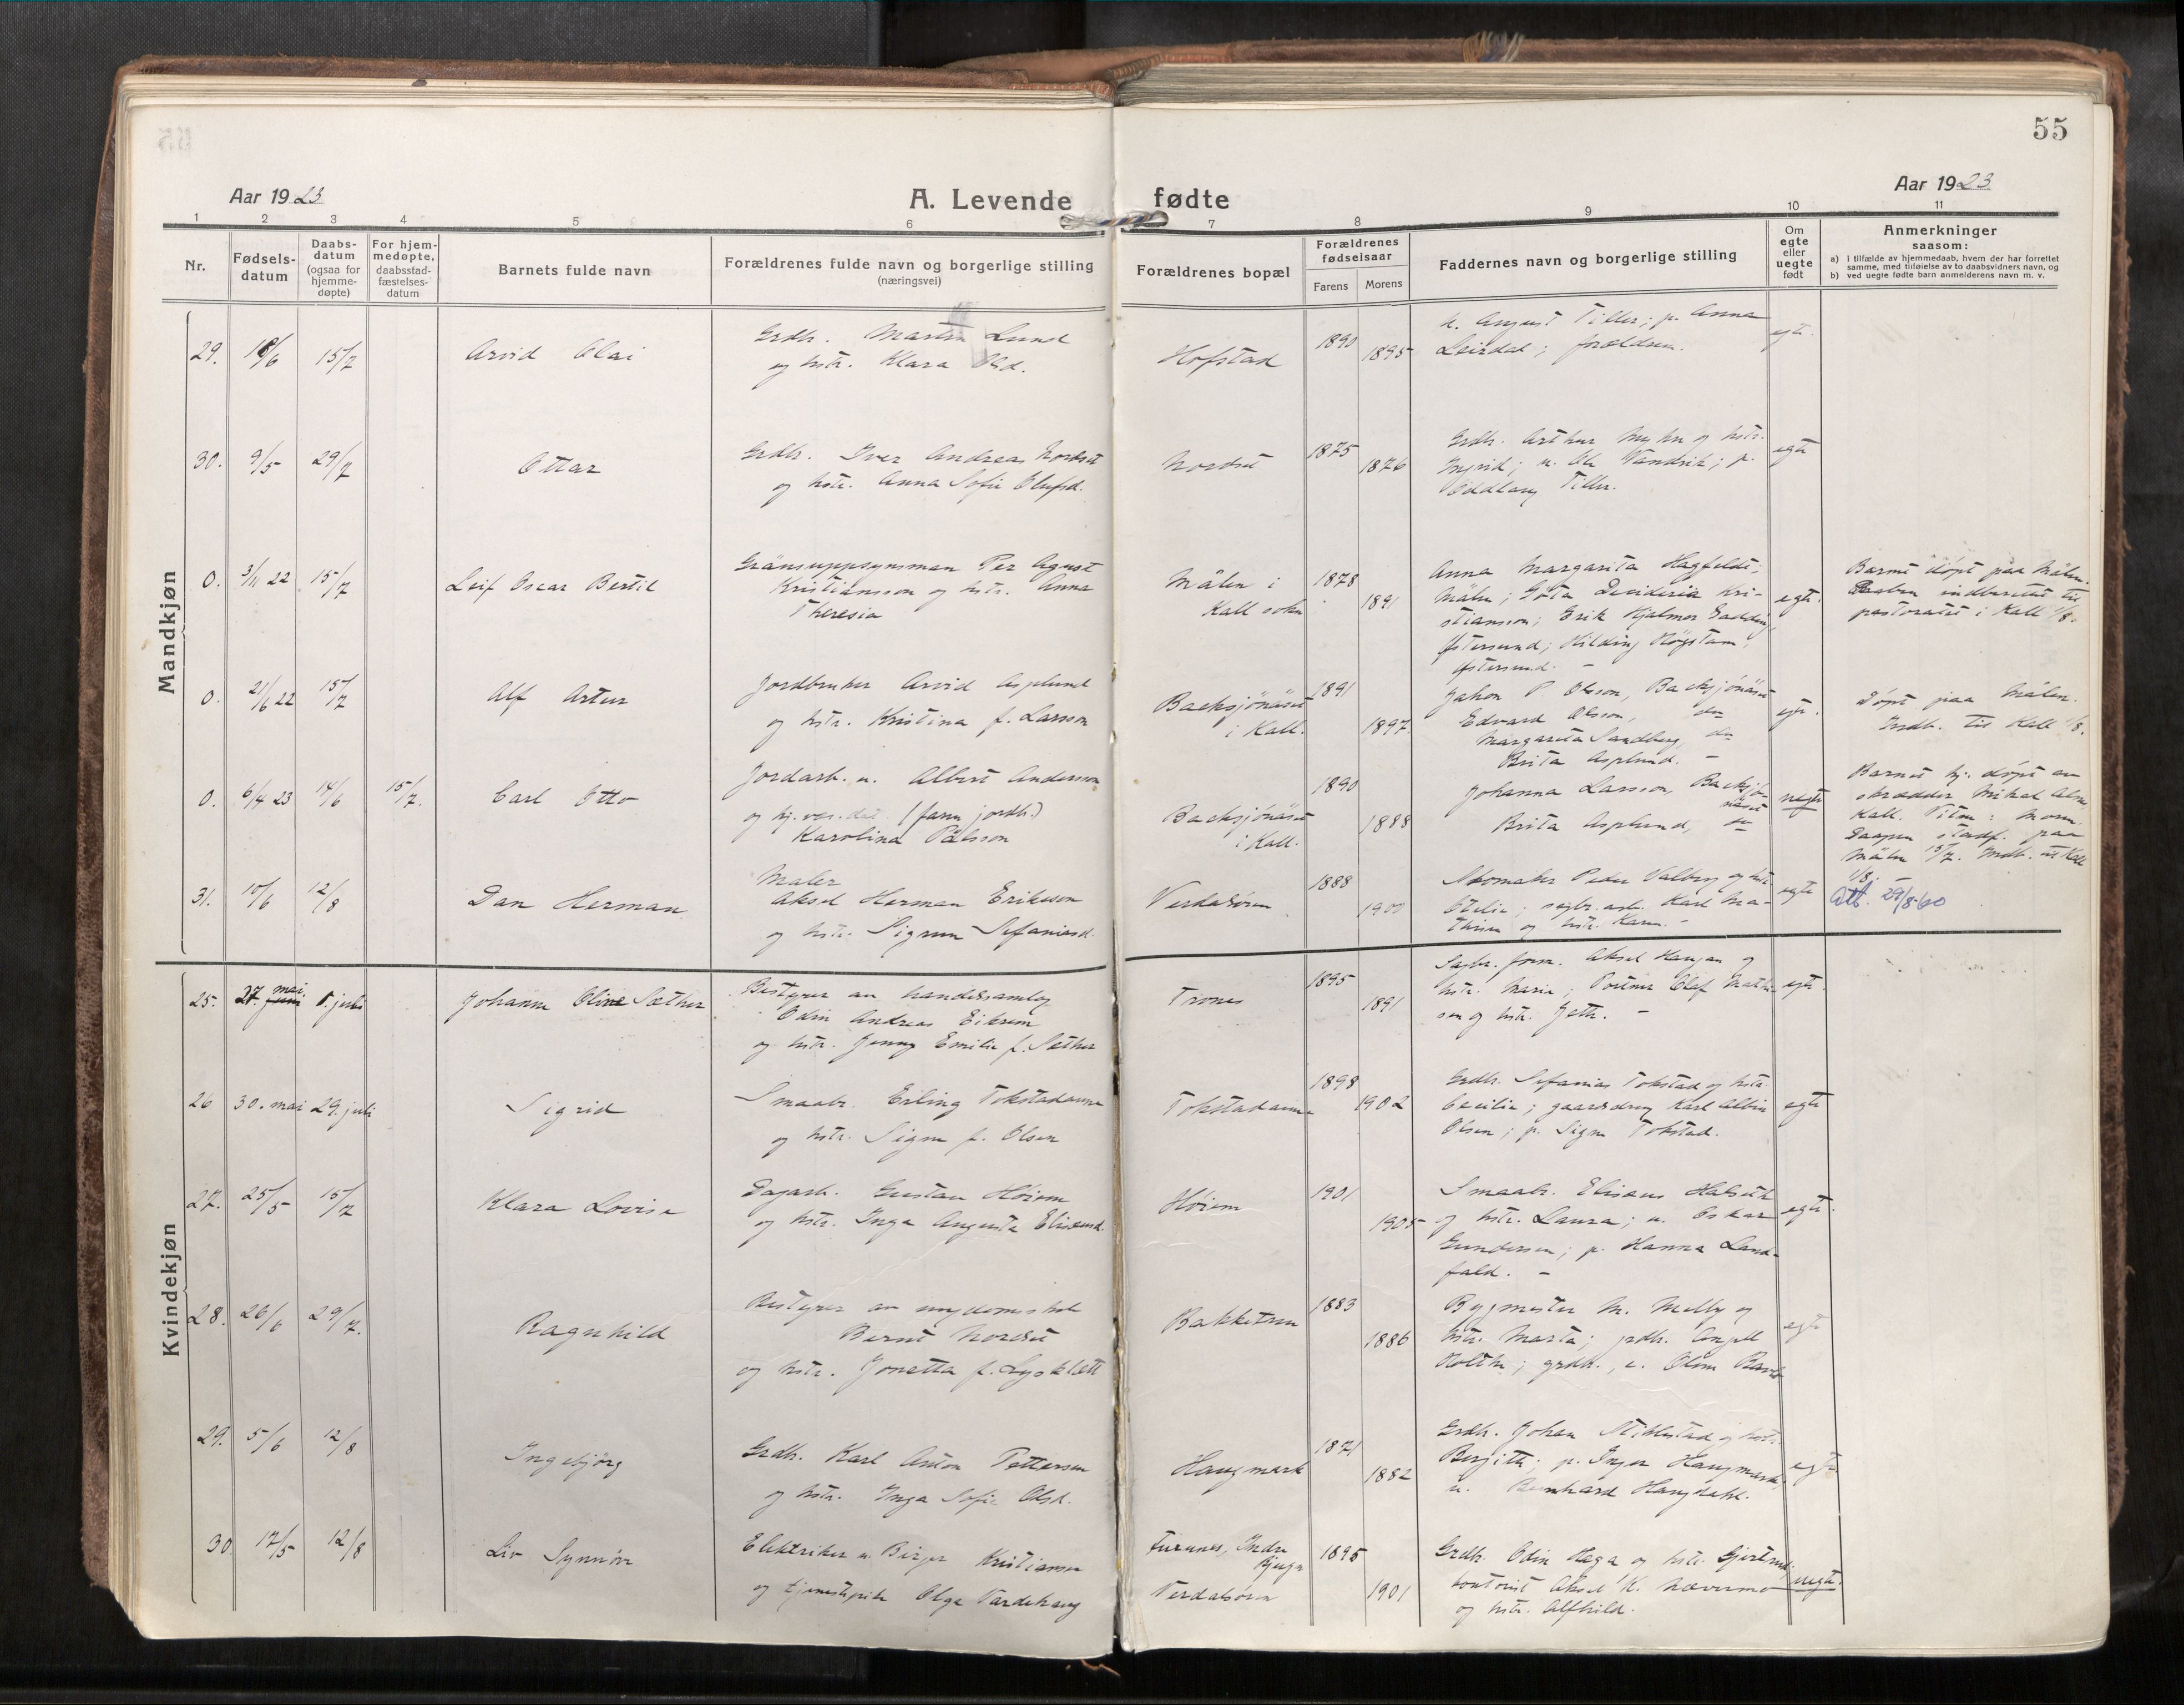 55
Aar 1923
A. Levende fødte
Aar 1923
1 2 3 4 5 6 7 8 9 10 11
Nr.
Fødsels-
datum
Daabs-
datum
(ogsaa for
hjemme-
døpte)
For hjem-
medøpte,
daabsstad-
fæstelses-
datum
Barnets fulde navn
Forældrenes fulde navn og borgerlige stilling
(næringsvei)
Forældrenes bopæl
Forældrenes
fødselsaar
Farens Morens
Faddernes navn og borgerlige stilling
Om
egte
eller
uegte
født
Anmerkninger
saasom:
a) i tilfælde av hjemmedaab, hvem der har forrettet
samme, med tilføielse av to daabsvidners navn, og
b) ved uegte fødte barn anmelderens navn m. v.
Mandkjøn
29. 15/7
Arvid Olai
Grdbr. Martin Lund
og hstr. Klara Olsd.
Hofstad
1890 1895
u. August Tiller; p. Anna
Leirdal; forældrene.
egte.
30. 9/5 29/7
Ottar
Grdbr. Iver Andreas Nordset
og hstr. Anna Sofie Olufsd.
Nordset
1875 1876
Grdbr. Arthur Myhr og hstr.
Ingrid; u. Ole Vandvik; p.
Oddlaug Tiller.
egte
0. 3/11 22 15/7
Leif Oscar Bertil
Gränsuppsynsman Per Agust
Kristiansson og hstr. Anna
Theresia
Målen i
Kall sokn
1878 1891
Anna Margarita Hagfeldt,
Målen; Göta Desideria Kri-
stiansson; Erik Hjalmer
Östersund; Hilding Högstam,
Östersund. -
egte.
Barnet døpt paa Målen.
Daaben indberettet til
pastoratet i Kall 1/8.
0. 21/6 22 15/7
Alf Artur
Jordbruker Arvid Asplund
og hstr. Kristina f. Larson
Backsjönäset
i Kall.
1891 1897.
P. Olsson, Backsjönäset
Edvard Olsson, do
Margareta Sandberg, do
Brita Asplund. -
egte.
Døpt paa Målen.
Indb. til Kall 1/8.
0. 6/4 23 14/6 15/7.
Carl Otto
Jordarb. u. Albert Anderson
og (farm jordb.)
Karolina Pålsson
Backsjönäset
i Kall.
1890 1888
Johanna Larsson, Backsjö-
näset
Brita Asplund, do
uegte
Barnet hj. døpt av
skrædder Mikal
Kall. Vitne: Morm.
Daapen stadf. paa
Målen 15/7. Indb. til Kall
1/8. -
31. 10/6 12/8
Dan Herman
Maler
Aksel Herman Erikson
og hstr. Sigrun Sefaniasd.
Verdalsøren
1888 1900
Skomaker Peder Valberg og hstr.
Otelie; sagbr.arb. Karl Ma-
thisen og hstr. Karen. -
egte
Att. 29/8-60
Kvindekjøn
25. 27. mai juni 1. juli
Johanne Oline Sæther
Bestyrer av handelssamlag
Odin Andreas Eikrem
og hstr. Jenny Emilie f. Sæther
Trones
1895 1891
Sagbr. form. Aksel Haugan og
hstr. Marie; Portner Olaf Mathi-
sen og hstr. -
egte.
26 30. mai 29. juli
Sigrid
Smaabr. Erling Tokstadaunet
og hstr. Signe f. Olsen
Tokstadaunet
1898 1902
Grdbr. Sefanias Tokstad og hstr.
Cecilie; gaardsdreng Karl Albin
Olsen; p. Signe Tokstad.
egte
27. 25/5 15/7
Klara Lovise
Dagarb. Gustav Høiem
og hstr. Inga Augusta Elisæusd.
Høiem
1901 1905
Smaabr. Elisæus Halseth
og hstr. Laura; u. Oskar
Gundersen; p. Hanna Land-
fald. -
egte.
28. 26/6 29/7.
Ragnhild
Bestyrer av ungdomsskole
Bernt Nordset
og hstr. Jonetta f. Lysklett
Bakketun
1883 1886
Bygmester M. Melby og
hstr. Marta; grdbr. Angell
Holthe; grdbr. e.
egte
29. 5/6 12/8
Ingebjörg
Grdbr. Karl Anton Pettersen
og hstr. Inga Sofie Olsd.
Haugmark
1871 1882
Grdbr. Johan Stiklestad og hstr.
Bergitte; p. Inger Haugmark,
u. Bernhard Haugdahl.
egte
30 17/5 12/8
Liv Synnöve
Elektriker u. Birger Kristiansen
og tjenestepike Olga Vardehaug
Furunes, Indre
Bjugn
Verdalsøren
1895 1901
Grdbr. Odin Haga og hstr. Gjertrud;
kontorist Aksel K. Nævermo
og hstr. Alfhild.
uegte.